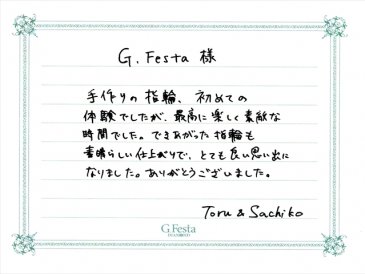 G. Festa 様
手作りの指輪、初めての
体験でしたが、最高に楽しく素敵な
時間でした。できあがった指輪も
素晴らしい仕上がりで、とても良い思い出に
なりました。ありがとうございました。
Toru & Sachiko
G.Festa